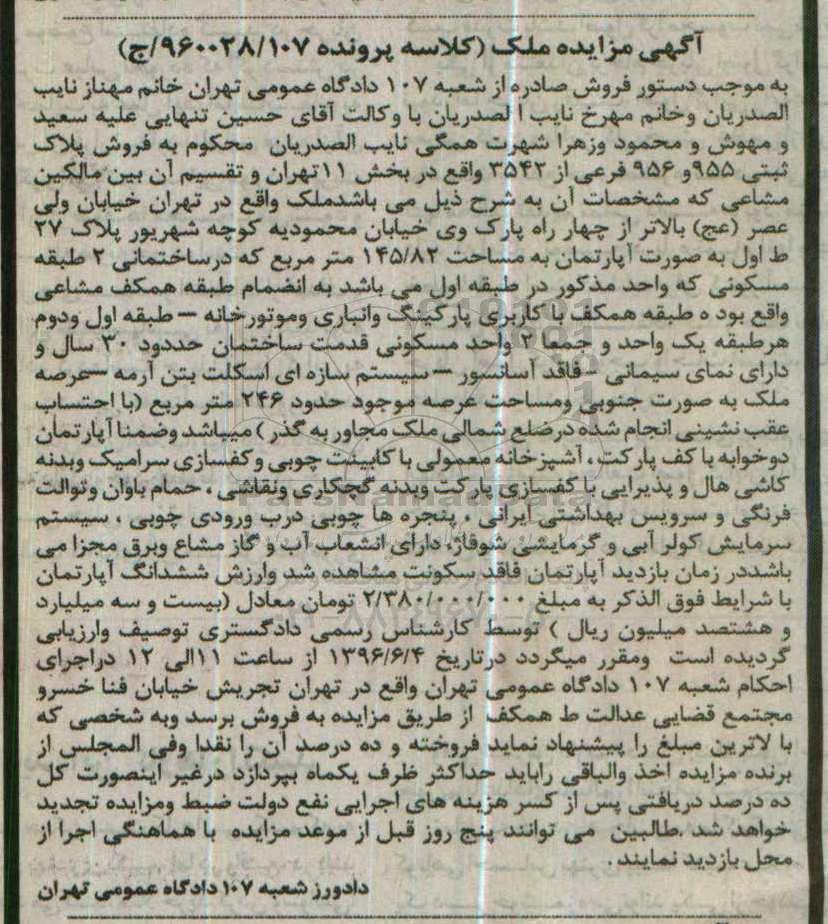 آگهی مزایده ملک (کلاسه پرونده ۹۶۰۰۲۸/۱۰۷/ج)
به موجب دستور فروش صادره از شعبه ۱۰۷ دادگاه عمومی تهران خانم مهناز نایب
الصدریان وخانم مهرخ نایب ا لصدریان با وکالت آقای حسین تنهایی علیه سعید
و مهوش و محمود وزهرا شهرت همگی نایب الصدریان محکوم به فروش پلاک
ثبتی ۹۵۵و ۹۵۶ فرعی از ۳۵۴۲ واقع در بخش ۱۱تهران و تقسیم آن بین مالکین
مشاعی که مشخصات آن به شرح ذیل می باشدملک واقع در تهران خیابان ولی
عصر (عج) بالاتر از چهار راه پارک وی خیابان محمودیه کوچه شهریور پلاک ۲۷
ط اول به صورت آپارتمان به مساحت ۱۴۵/۸۲ متر مربع که درساختمانی ۲ طبقه
مسکونی که واحد مذکور در طبقه اول می باشد به انضمام طبقه همکف مشاعی
واقع بود ه طبقه همکف با کاربری پارکینگ وانباری وموتورخانه – طبقه اول ودوم
هرطبقه یک واحد و جمعا ۲ واحد مسکونی قدمت ساختمان حددود ۳۰ سال و
دارای نمای سیمانی – فاقد آسانسور – سیستم سازه ای اسکلت بتن آرمه – عرصه
ملک به صورت جنوبی ومساحت عرصه موجود حدود ۲۴۶ متر مربع (با احتساب
عقب نشینی انجام شده درضلع شمالی ملک مجاور به گذر ) میباشد وضمنا آپارتمان
دوخوابه با کف پارکت ، آشپزخانه معمولی با کابینت چوبی وکفسازی سرامیک وبدنه
کاشی هال و پذیرایی با کفسازی پارکت وبدنه گچکاری ونقاشی ، حمام باوان وتوالت
فرنگی و سرویس بهداشتی ایرانی ، پنجره ها چوبی درب ورودی چوبی ، سیستم
سرمایش کولر آبی و گرمایشی شوفاژ، دارای انشعاب آب و گاز مشاع وبرق مجزا می
باشددر زمان بازدید آپارتمان فاقد سکونت مشاهده شد وارزش ششدانگ آپارتمان
با شرایط فوق الذکر به مبلغ ۲/۳۸۰/۰۰۰/۰۰۰ تومان معادل (بیست و سه میلیارد
و هشتصد میلیون ریال ) توسط کارشناس رسمی دادگستری توصیف وارزیابی
گردیده است ومقرر میگردد درتاریخ ۱۳۹۶/۶/۴ از ساعت ۱۱الی ۱۲ دراجرای
احکام شعبه ۱۰۷ دادگاه عمومی تهران واقع در تهران تجریش خیابان فنا خسرو
مجتمع قضایی عدالت ط همکف از طریق مزایده به فروش برسد وبه شخصی که
با لاترین مبلغ را پیشنهاد نماید فروخته و ده درصد آن را نقدا وفی المجلس از
برنده مزایده اخذ والباقی راباید حداکثر ظرف یکماه بپردازد درغیر اینصورت کل
ده درصد دریافتی پس از کسر هزینه های اجرایی نفع دولت ضبط ومزایده تجدید
خواهد شد .طالبین می توانند پنج روز قبل از موعد مزایده با هماهنگی اجرا از
محل بازدید نمایند .
دادورز شعبه ۱۰۷ دادگاه عمومی تهران